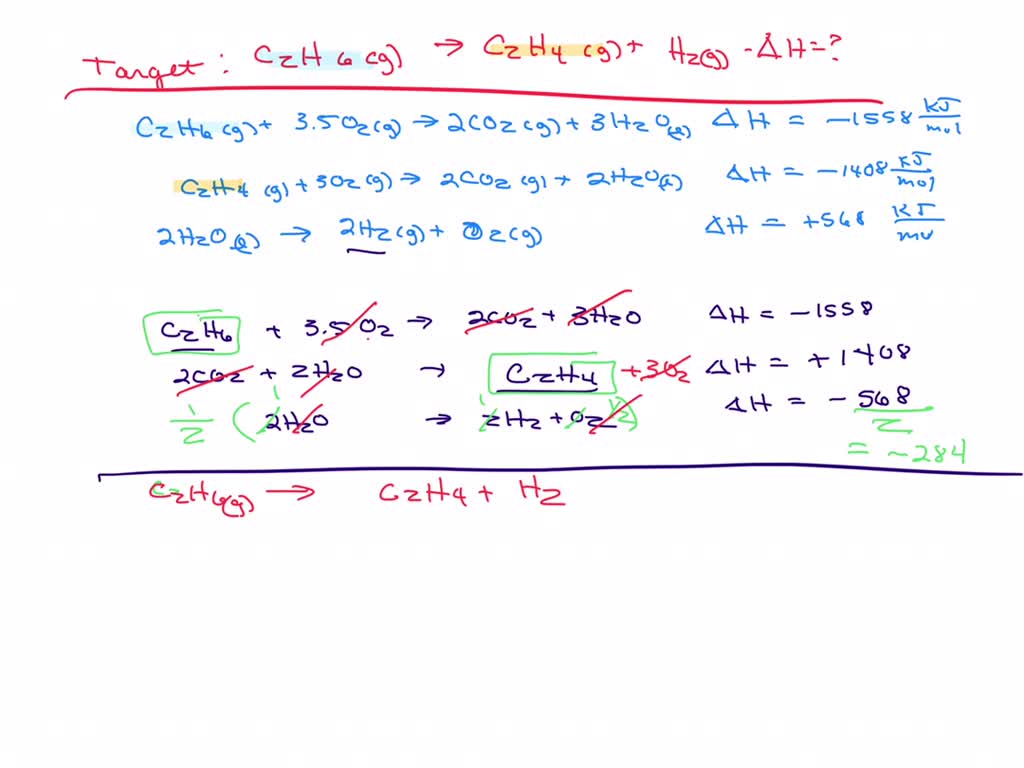 Target: C2H6(g) → C2H4(g) + H2(g) - ΔH=?
C2H6(g) + 3.5O2(g) → 2CO2(g) + 3H2O(l) ΔH = -1558 kJ/mol
C2H4(g) + 3O2(g) → 2CO2(g) + 2H2O(l) ΔH = -1408 kJ/mol
2H2O(l) → 2H2(g) + O2(g) ΔH = +568 kJ/mol
C2H6 + 3.5O2 → 2CO2 + 3H2O ΔH = -1558
2CO2 + 2H2O → C2H4 + 3O2 ΔH = +1408
1/2 (2H2O → 2H2 + O2) ΔH = -568/2
1 1 1/2
= -284
C2H6(g) → C2H4 + H2